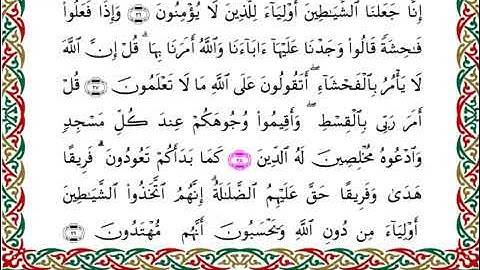 إِنَّا جَعَلْنَا ٱلشَّيَـٰطِينَ أَوْلِيَآءَ لِلَّذِينَ لَا يُؤْمِنُونَ ٢٦ وَإِذَا فَعَلُوا۟
فَـٰحِشَةً قَالُوا۟ وَجَدْنَا عَلَيْهَآ ءَابَآءَنَا وَٱللَّهُ أَمَرَنَا بِهَا ۗ قُلْ إِنَّ ٱللَّهَ
لَا يَأْمُرُ بِٱلْفَحْشَآءِ ۖ أَتَقُولُونَ عَلَى ٱللَّهِ مَا لَا تَعْلَمُونَ ٢٧ قُلْ
أَمَرَ رَبِّى بِٱلْقِسْطِ ۖ وَأَقِيمُوا۟ وُجُوهَكُمْ عِندَ كُلِّ مَسْجِدٍ
وَٱدْعُوهُ مُخْلِصِينَ لَهُ ٱلدِّينَ ٢٨ كَمَا بَدَأَكُمْ تَعُودُونَ ۚ فَرِيقًا
هَدَىٰ وَفَرِيقًا حَقَّ عَلَيْهِمُ ٱلضَّلَـٰلَةُ ۗ إِنَّهُمُ ٱتَّخَذُوا۟ ٱلشَّيَـٰطِينَ
أَوْلِيَآءَ مِن دُونِ ٱللَّهِ وَيَحْسَبُونَ أَنَّهُم مُّهْتَدُونَ ٢٩